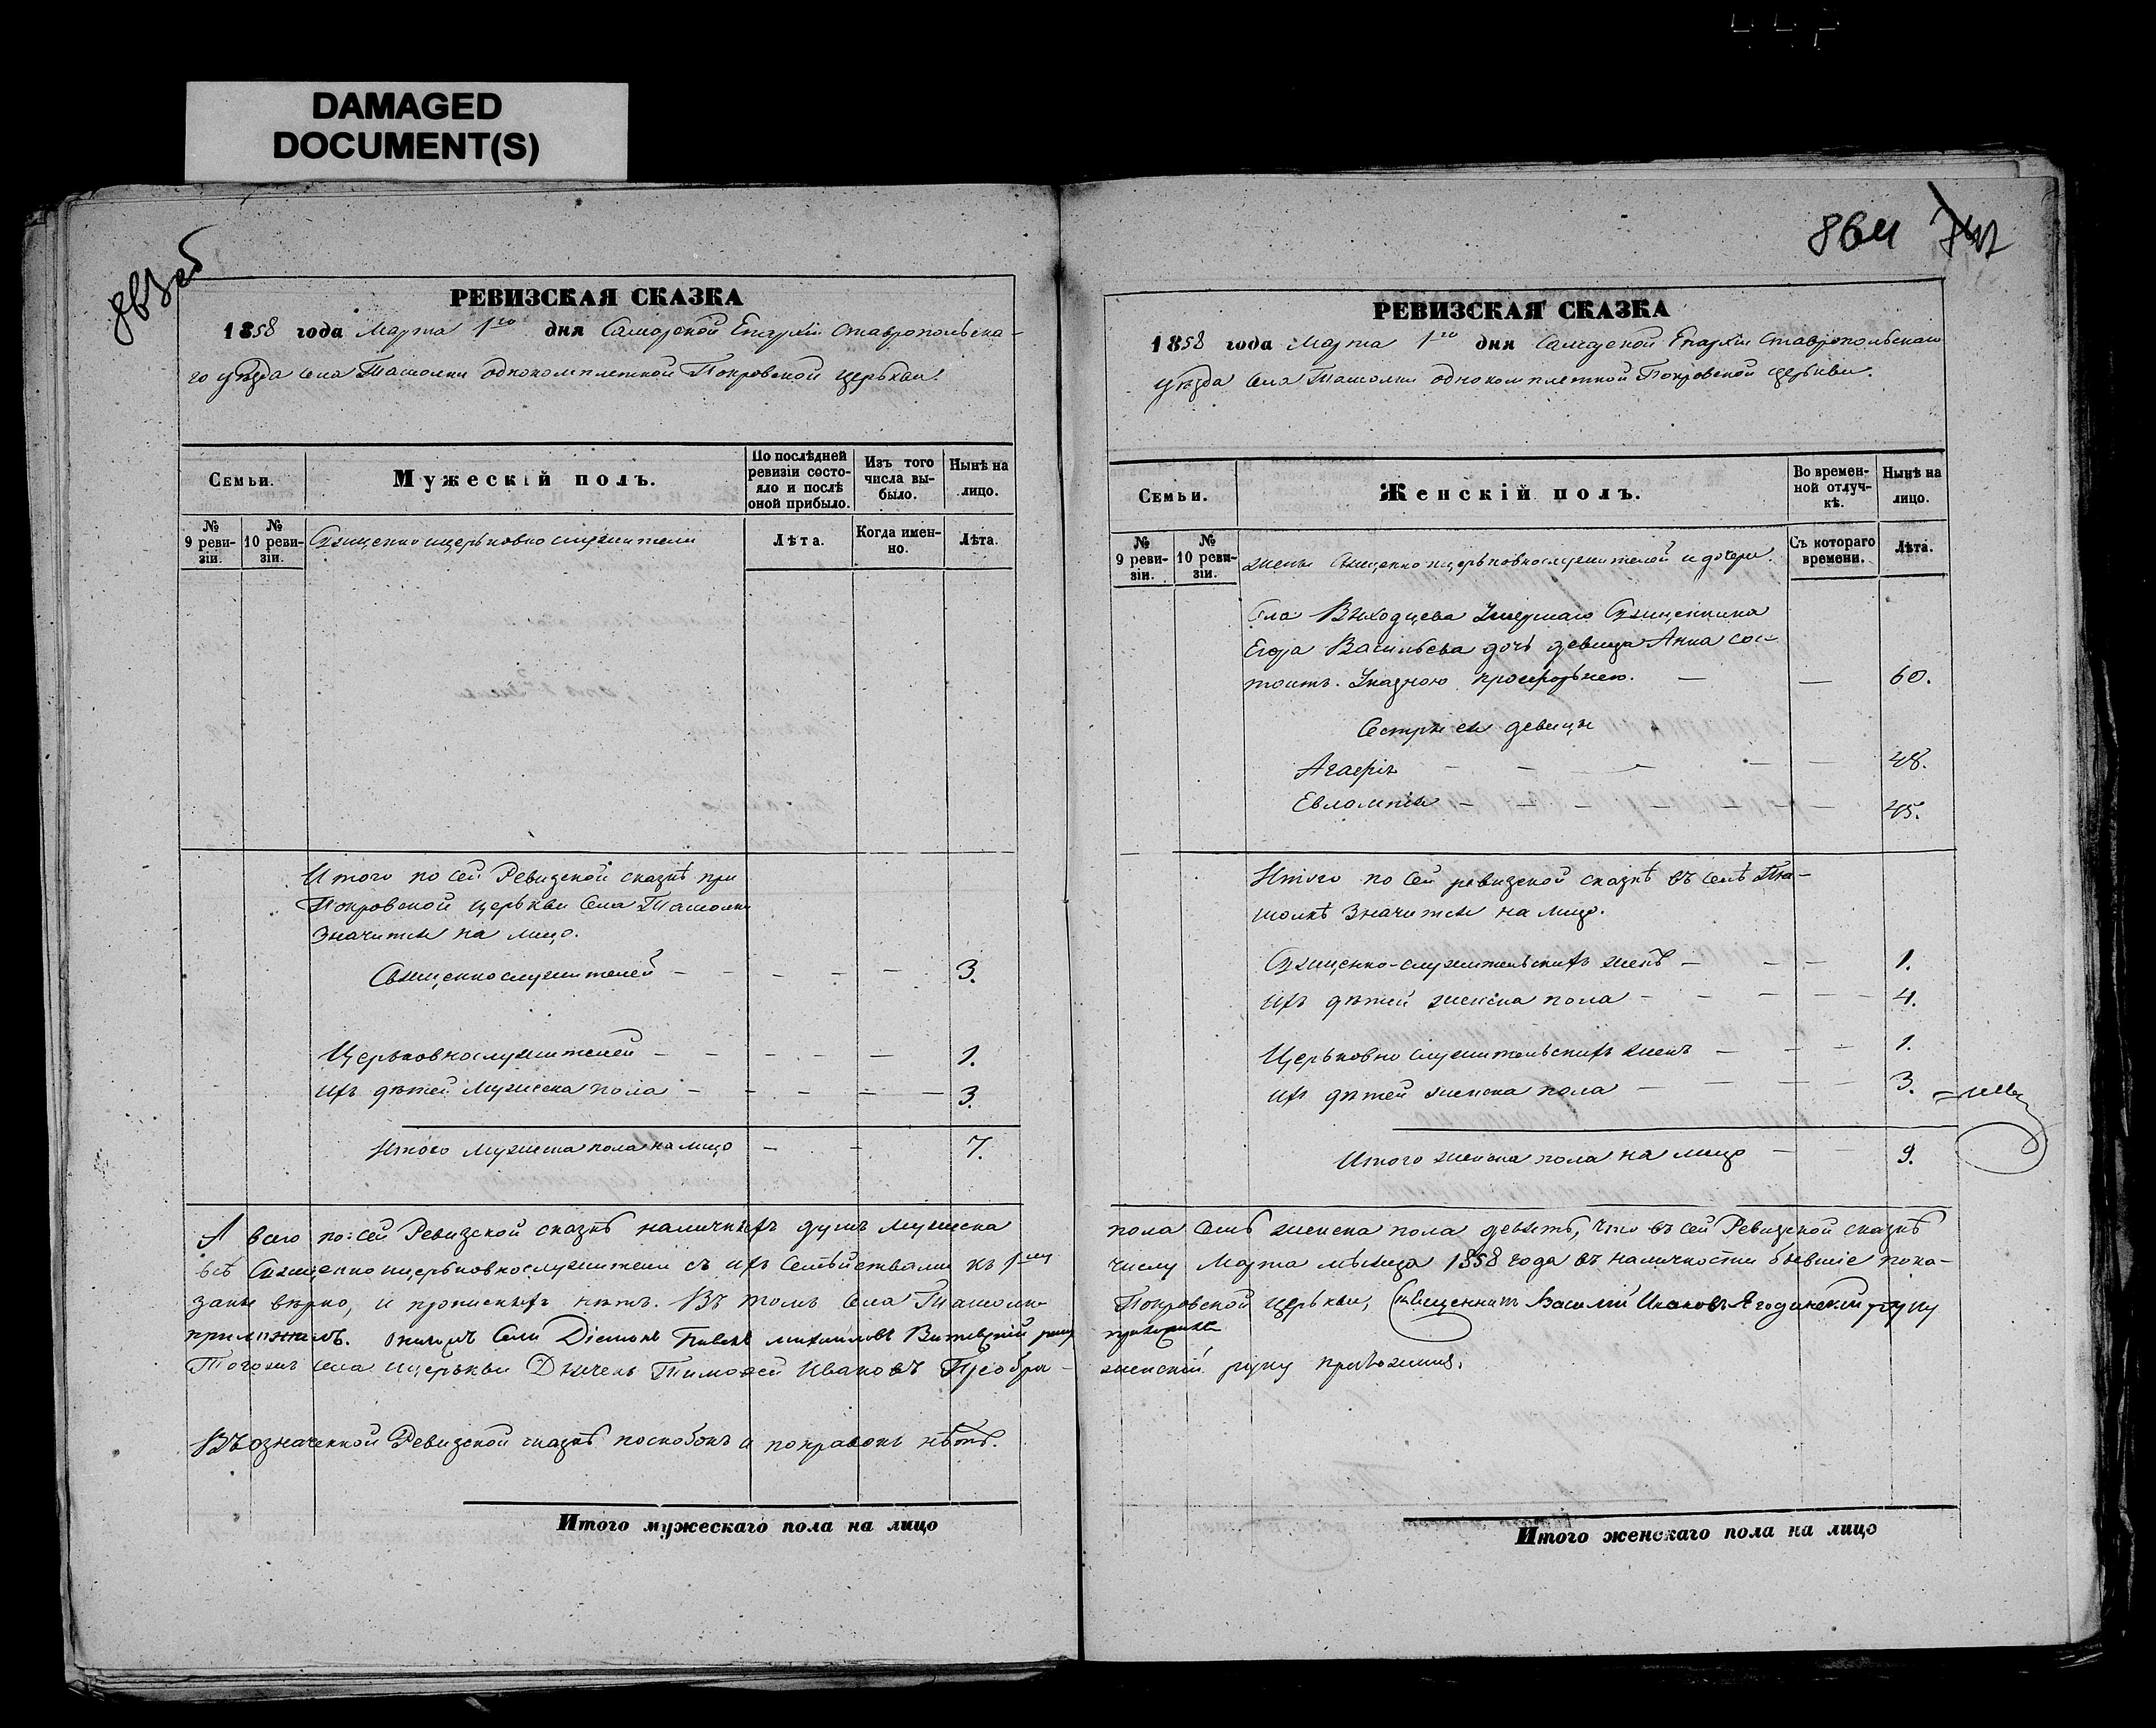 DAMAGED
DOCUMENT(S)
863 об
РЕВИЗСКАЯ СКАЗКА
1858 года Марта 1го дня Самарской Епархіи Ставропольска-
го уѣзда села Ташолки однокомплетной Покровской церькви.
Семьи.
Мужескій полъ.
По послѣдней ревизіи состояло и послѣ оной прибыло.
Изъ того числа выбыло.
Нынѣ на лицо.
№ 9 ревизіи.
№ 10 ревизіи.
Священноицерьковнослужители
Лѣта.
Когда именно.
Лѣта.
Итого по сей Ревизской сказкѣ при
Покровской церькви села Ташолки
значится на лицо.
Священнослужителей — — — — — 3.
Церьковнослужителей — — — — — 1.
ихъ дѣтей мужеска пола — — — — — 3.
Итого мужеска пола на лицо — — 7.
А всего по сей Ревизской сказкѣ наличныхъ душъ мужеска
всѣ Священноицерьковнослужители съ ихъ семѣйствами къ 1му
заны вѣрно, и прописныхъ нѣтъ. Въ томъ села Ташолки
приложилъ. Села Діяконъ Павелъ Михайловъ руку
Тогожъ села ицерькви Дьячекъ Тимоѳей Ивановъ Преобра-
Въ означенной Ревизской сказкѣ поскобокъ и поправокъ нѣтъ.
Итого мужескаго пола на лицо
864
РЕВИЗСКАЯ СКАЗКА
1858 года Марта 1го дня Самарской Епархіи Ставропольскаго
уѣзда села Ташолки однокомплетной Покровской церькви.
Семьи.
Женскій полъ.
Во временной отлучкѣ.
Нынѣ на лицо.
№ 9 ревизіи.
№ 10 ревизіи.
жены Священноицерьковнослужителей и дочери.
Съ котораго времени.
Лѣта.
Села Выходцева Умершаго Священника
Егора Васильева дочь девица Анна сос-
тоитъ Указною просфорьнею. — — 60.
Сестры ея девицы
Агафія — — — — — 48.
Евлампія — — — — — — 45.
Итого по сей ревизской сказкѣ въ селѣ Та-
шолкѣ значится на лицо.
Священно-служительскихъ женъ — — — 1.
ихъ дѣтей женска пола — — — — 4.
Церьковно служительскихъ женъ — — — 1.
ихъ дѣтей женска пола — — — — 3.
Итого женска пола на лицо — — 9.
пола семь женска пола девять, что въ сей Ревизской сказкѣ
числу Марта мѣсяца 1858 года въ наличности бывшіе пока-
Покровской церькви, Священникъ Василій Ивановъ Ягодинскій руку
женскій руку приложилъ.
Итого женскаго пола на лицо